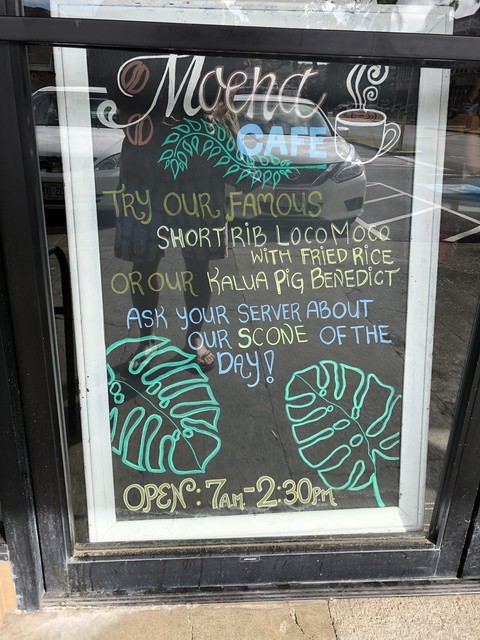 Moena
CAFE
TRY OUR FAMOUS
SHORT RIB LOCO MOCO
WITH FRIED RICE
OR OUR KALUA PIG BENEDICT
ASK YOUR SERVER ABOUT
OUR SCONE OF THE
DAY!
OPEN: 7AM-2:30PM